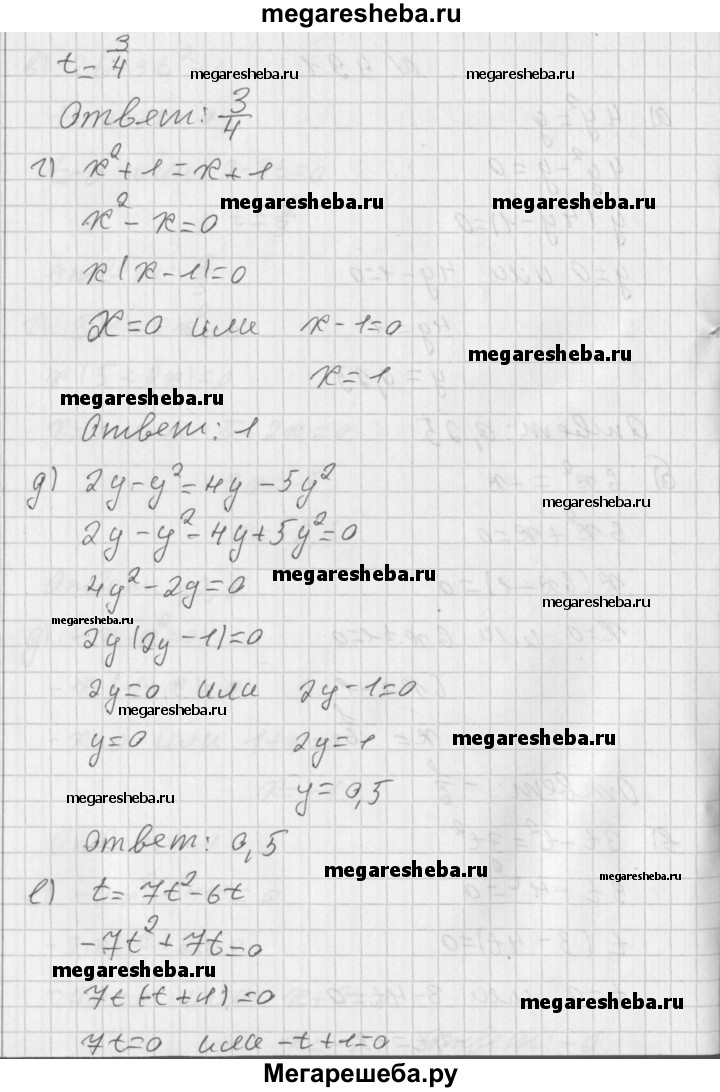 megaresheba.ru
t = 3/4
megaresheba.ru megaresheba.ru
Ответ: 3/4
г) x² + 1 = x + 1
megaresheba.ru megaresheba.ru
x² - x = 0
x(x - 1) = 0
x = 0 или x - 1 = 0
megaresheba.ru
x = 1
megaresheba.ru
Ответ: 1
д) 2y - y² = 4y - 5y²
megaresheba.ru
2y - y² - 4y + 5y² = 0
megaresheba.ru
4y² - 2y = 0
megaresheba.ru
megaresheba.ru
2y(2y - 1) = 0
2y = 0 или 2y - 1 = 0
megaresheba.ru
y = 0 2y = 1
megaresheba.ru
y = 0,5
megaresheba.ru
Ответ: 0,5
megaresheba.ru
е) t = 7t² - 6t
-7t² + 7t = 0
megaresheba.ru
7t(-t + 1) = 0
megaresheba.ru
7t = 0 или -t + 1 = 0
Мегарешеба.ру